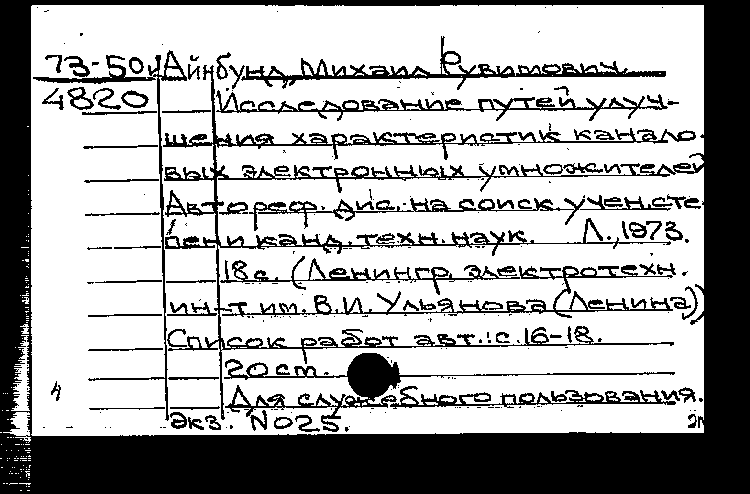 73-50 Айнбунд, Михаил Рувимович
4820 Исследование путей улуч-
шения характеристик канало-
вых электронных умножителей
Автореф. дис. на соиск. учен. сте-
пени канд. техн. наук. Л., 1973.
18 с. (Ленингр. электротехн.
ин-т им. В.И. Ульянова (Ленина))
Список работ авт.: с. 16-18.
20 ст.
Для служебного пользования.
Экз. № 025.